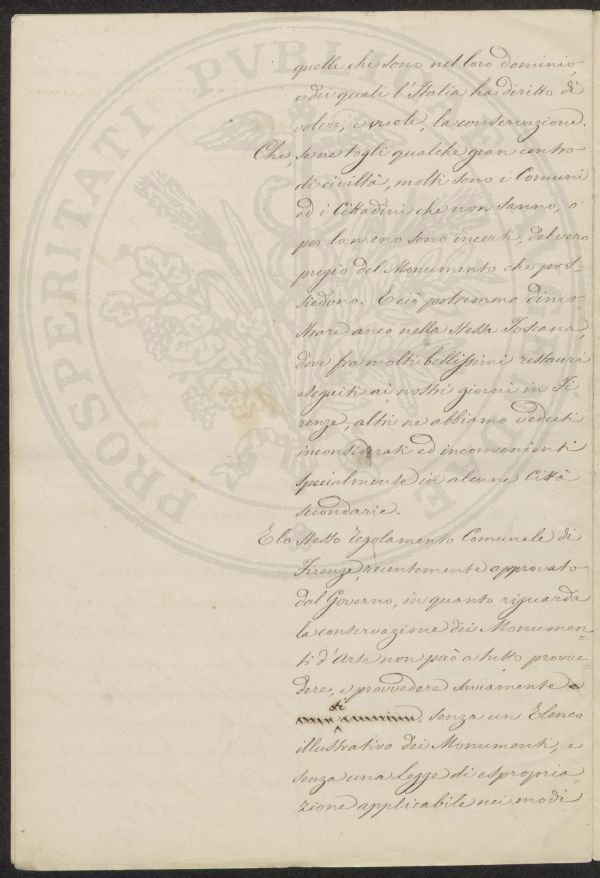 quelli che sono nel loro dominio,
e dei quali l'Italia ha diritto di
volere, e vuole, la conservazione.
Che, se ne togli qualche gran centro
di civiltà, molti sono i Comuni
ed i Cittadini che non sanno, o
per lo meno sono incerti, del vero
pregio del Monumento che pos=
siedono. E ciò potremmo dimo=
strare anco nella stessa Toscana,
dove fra molti bellissimi restauri
eseguiti ai nostri giorni in Fi=
renze, altri ne abbiamo veduti
inconsiderati ed inconvenienti
specialmente in alcune Città
secondarie.
E lo stesso Regolamento Comunale di
Firenze, recentemente approvato
dal Governo, in quanto riguarda
la conservazione dei Monumen=
ti d'Arte non può a tutto provve=
dere, e provvedere saviamente
senza un Elenco
illustrativo dei Monumenti, e
senza una Legge di espropria=
zione applicabile nei modi
PROSPERITATI PVBLICAE